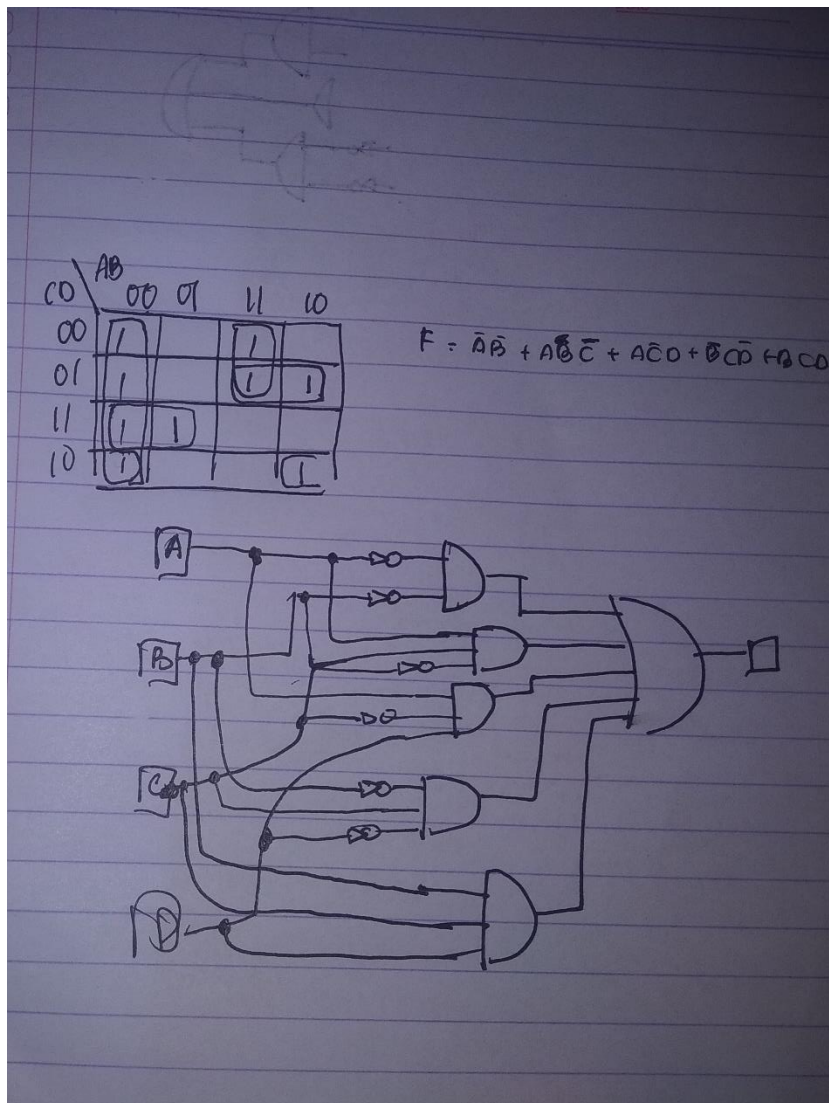 AB
CD 00 01 11 10
00 1 1
01 1 1 1
11 1 1
10 1 1
F = A̅B̅ + ABC̅ + AC̅D + B̅CD̅ + BCD
A
B
C
D